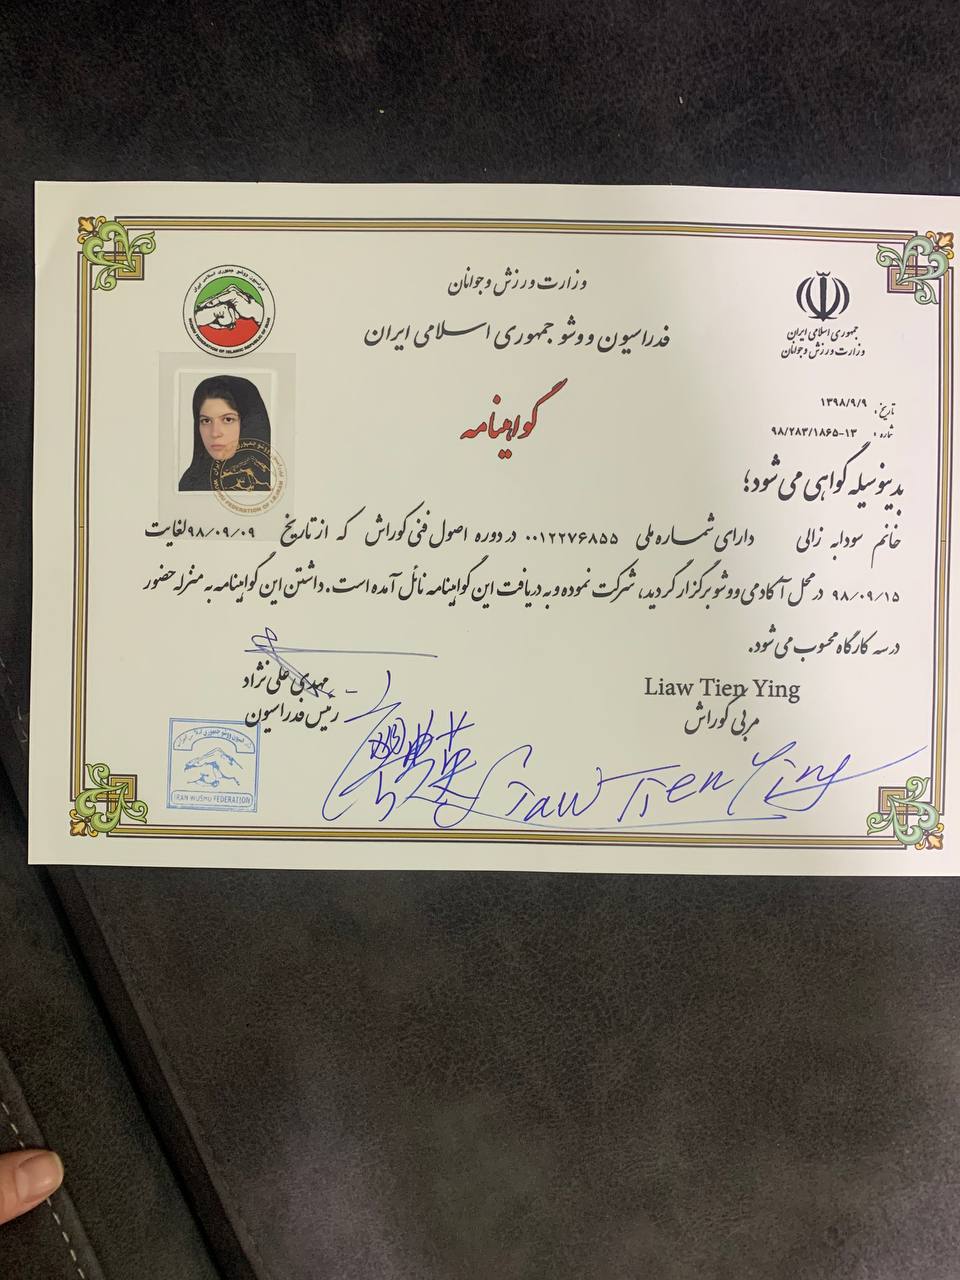 وزارت ورزش و جوانان
فدراسیون ووشو جمهوری اسلامی ایران
جمهوری اسلامی ایران
وزارت ورزش و جوانان
WUSHU FEDERATION OF ISLAMIC REPUBLIC OF IRAN
گواهینامه
تاریخ: ۱۳۹۸/۹/۹
شماره: ۹۸/۲۸۳/۱۸۶۵-۱۳
بدینوسیله گواهی می شود؛
خانم سودابه زالی دارای شماره ملی ۰۰۱۲۲۷۶۸۵۵ در دوره اصول فنی کوراش که از تاریخ ۹۸/۰۹/۰۹ لغایت
۹۸/۰۹/۱۵ در محل آکادمی ووشو برگزار گردید، شرکت نموده و به دریافت این گواهینامه نائل آمده است. داشتن این گواهینامه به منزله حضور
در سه کارگاه محسوب می شود.
Liaw Tien Ying
مربی کوراش
مهدی علی نژاد
رئیس فدراسیون
IRAN WUSHU FEDERATION
Liaw Tien Ying